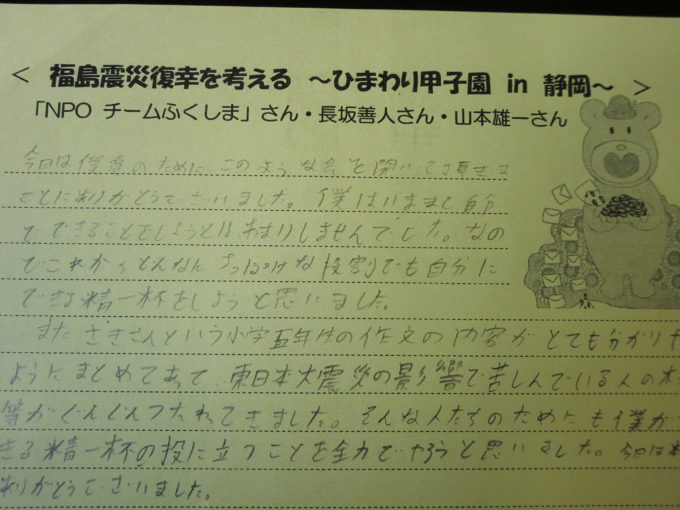 ＜ 福島震災復幸を考える ～ひまわり甲子園 in 静岡～ ＞
「NPO チームふくしま」さん・長坂善人さん・山本雄一さん
今日は僕達のために、このような会を開いて頂きま
ことにありがとうございました。僕はいままで自分
でできることをしようとはあまりしませんでした。なの
でこれからどんなにちっぽけな役割でも自分に
できる精一杯をしようと思いました。
またさきさんという小学五年生の作文の内容がとても分かりや
ようにまとめてあって、東日本大震災の影響で苦しんでいる人の
等がぐんぐんつたわってきました。そんな人たちのためにも僕が
きる精一杯の役に立つことを全力でやろうと思いました。今日は
ありがとうございました。